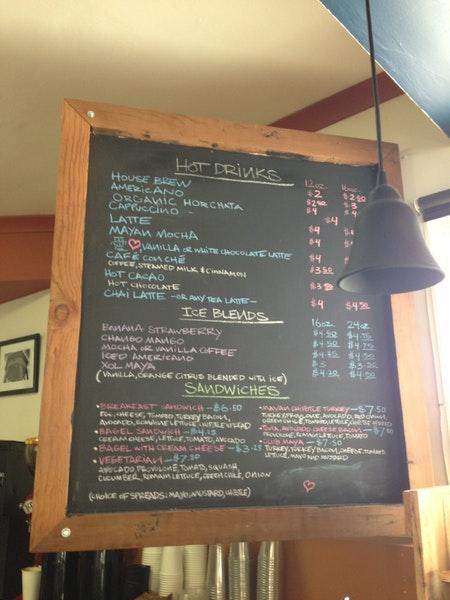 HOT DRINKS
12oz.
HOUSE BREW $2
AMERICANO
ORGANIC HORCHATA
CAPPUCCINO $4 $4
LATTE
MAYAN MOCHA $4
VANILLA OR WHITE CHOCOLATE LATTE
CAFÉ CON CHÉ $3.50
COFFEE, STEAMED MILK & CINNAMON
HOT CACAO
HOT CHOCOLATE
CHAI LATTE -OR ANY TEA LATTE- $4 $4.50
ICE BLENDS
16oz. 24oz.
BANANA STRAWBERRY
CHANGO MANGO
MOCHA OR VANILLA COFFEE
ICED AMERICANO
XOL MAYA
(VANILLA, ORANGE CITRUS BLENDED WITH ICE)
SANDWICHES
• BREAKFAST SANDWICH - $6.50
EGG, CHEESE, TOMATO, TURKEY BACON,
AVOCADO, ROMAINE LETTUCE, CHIPOTLE SPREAD
• BAGEL SANDWICH - $4.25
CREAM CHEESE, LETTUCE, TOMATO, AVOCADO
• BAGEL WITH CREAM CHEESE - $3.25
• VEGETARIAN - $7.50
AVOCADO, PROVOLONE, TOMATO, SQUASH
CUCUMBER, ROMAIN LETTUCE, GREEN CHILE, ONION
(CHOICE OF SPREADS: MAYO, MUSTARD, CHIPOTLE)
• MAYAN CHIPOTLE TURKEY - $7.50
TURKEY, PROVOLONE, AVOCADO, RED ONION
GREEN CHILE, TOMATO, LETTUCE, CHIPOTLE SPREAD
AVOCADO CHEESE BACON
PROVOLONE, ROMAIN LETTUCE, TOMATO
• CLUB MAYA - $7.50
TURKEY, TURKEY BACON, CHEESE, TOMATO
LETTUCE, MAYO AND MUSTARD